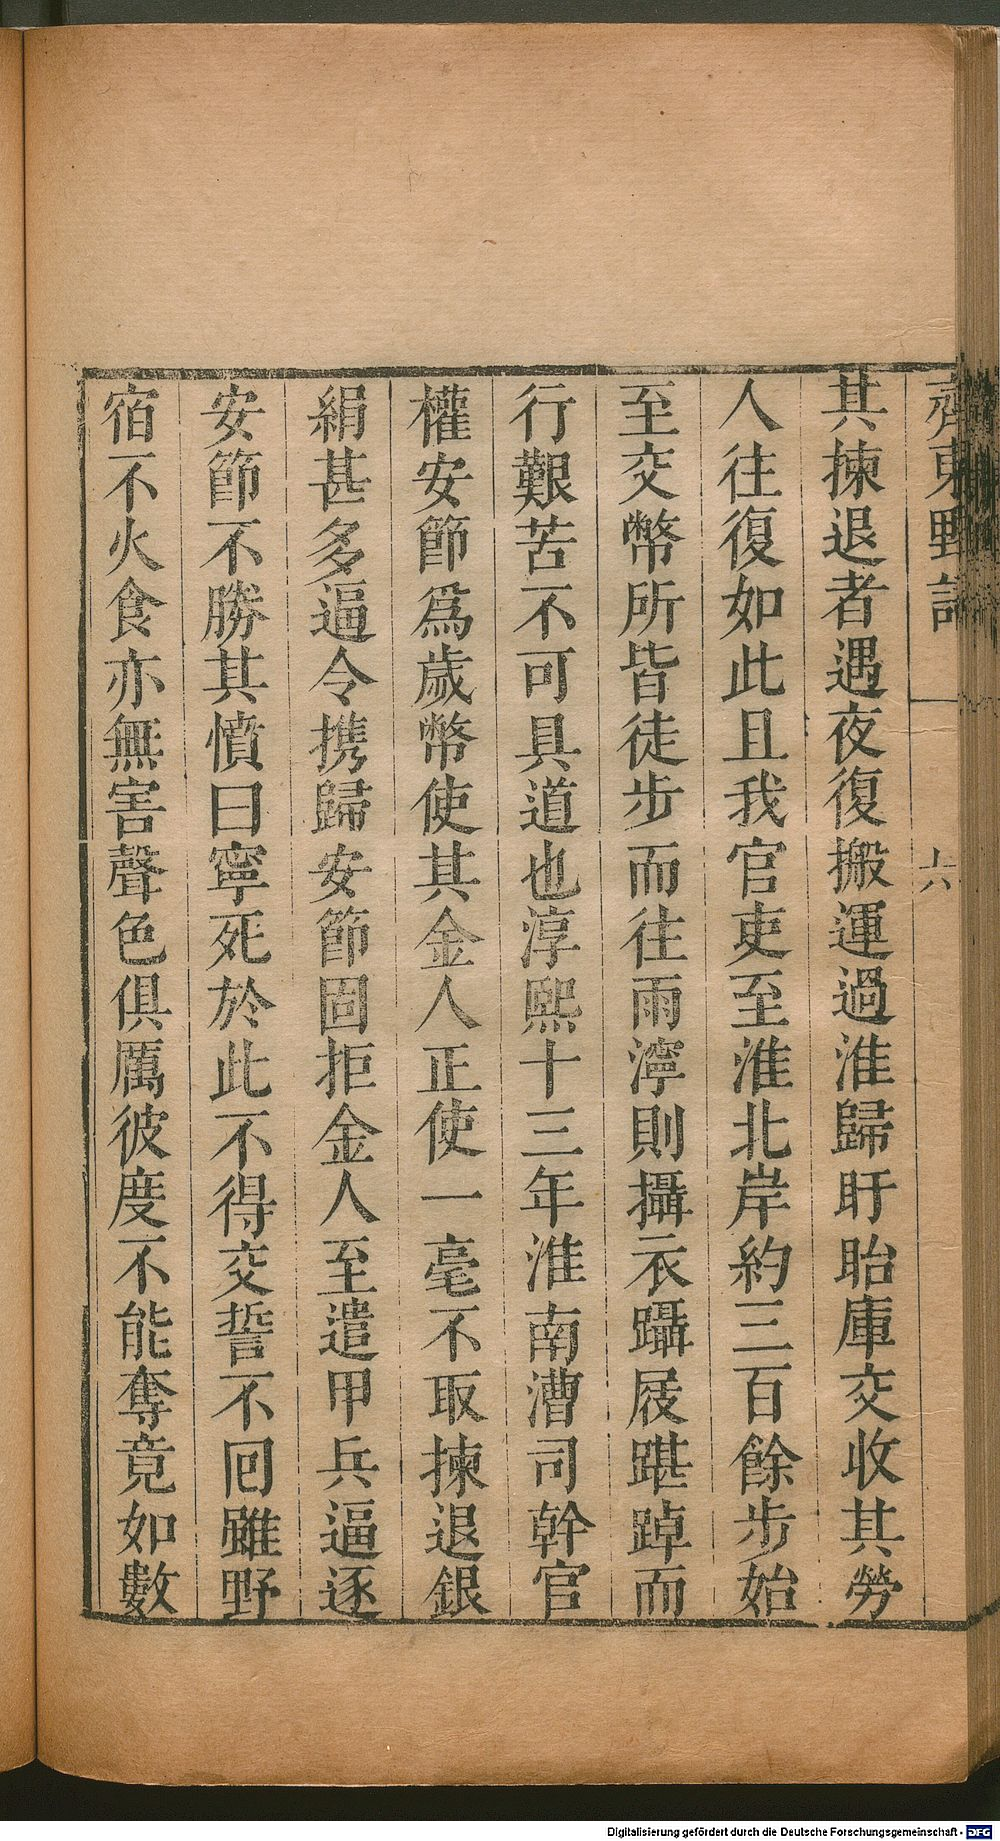 齊東野語
六
其揀退者遇夜復搬運過淮歸盱眙庫交收其勞
人往復如此且我官吏至淮北岸約三百餘步始
至交幣所皆徒步而往雨濘則攝衣躡屐踸踔而
行艱苦不可具道也淳熙十三年淮南漕司幹官
權安節爲歲幣使其金人正使一毫不取揀退銀
絹甚多逼令携歸安節固拒金人至遣甲兵逼逐
安節不勝其憤曰寧死於此不得交誓不囘雖野
宿不火食亦無害聲色俱厲彼度不能奪竟如數
Digitalisierung gefördert durch die Deutsche Forschungsgemeinschaft - DFG